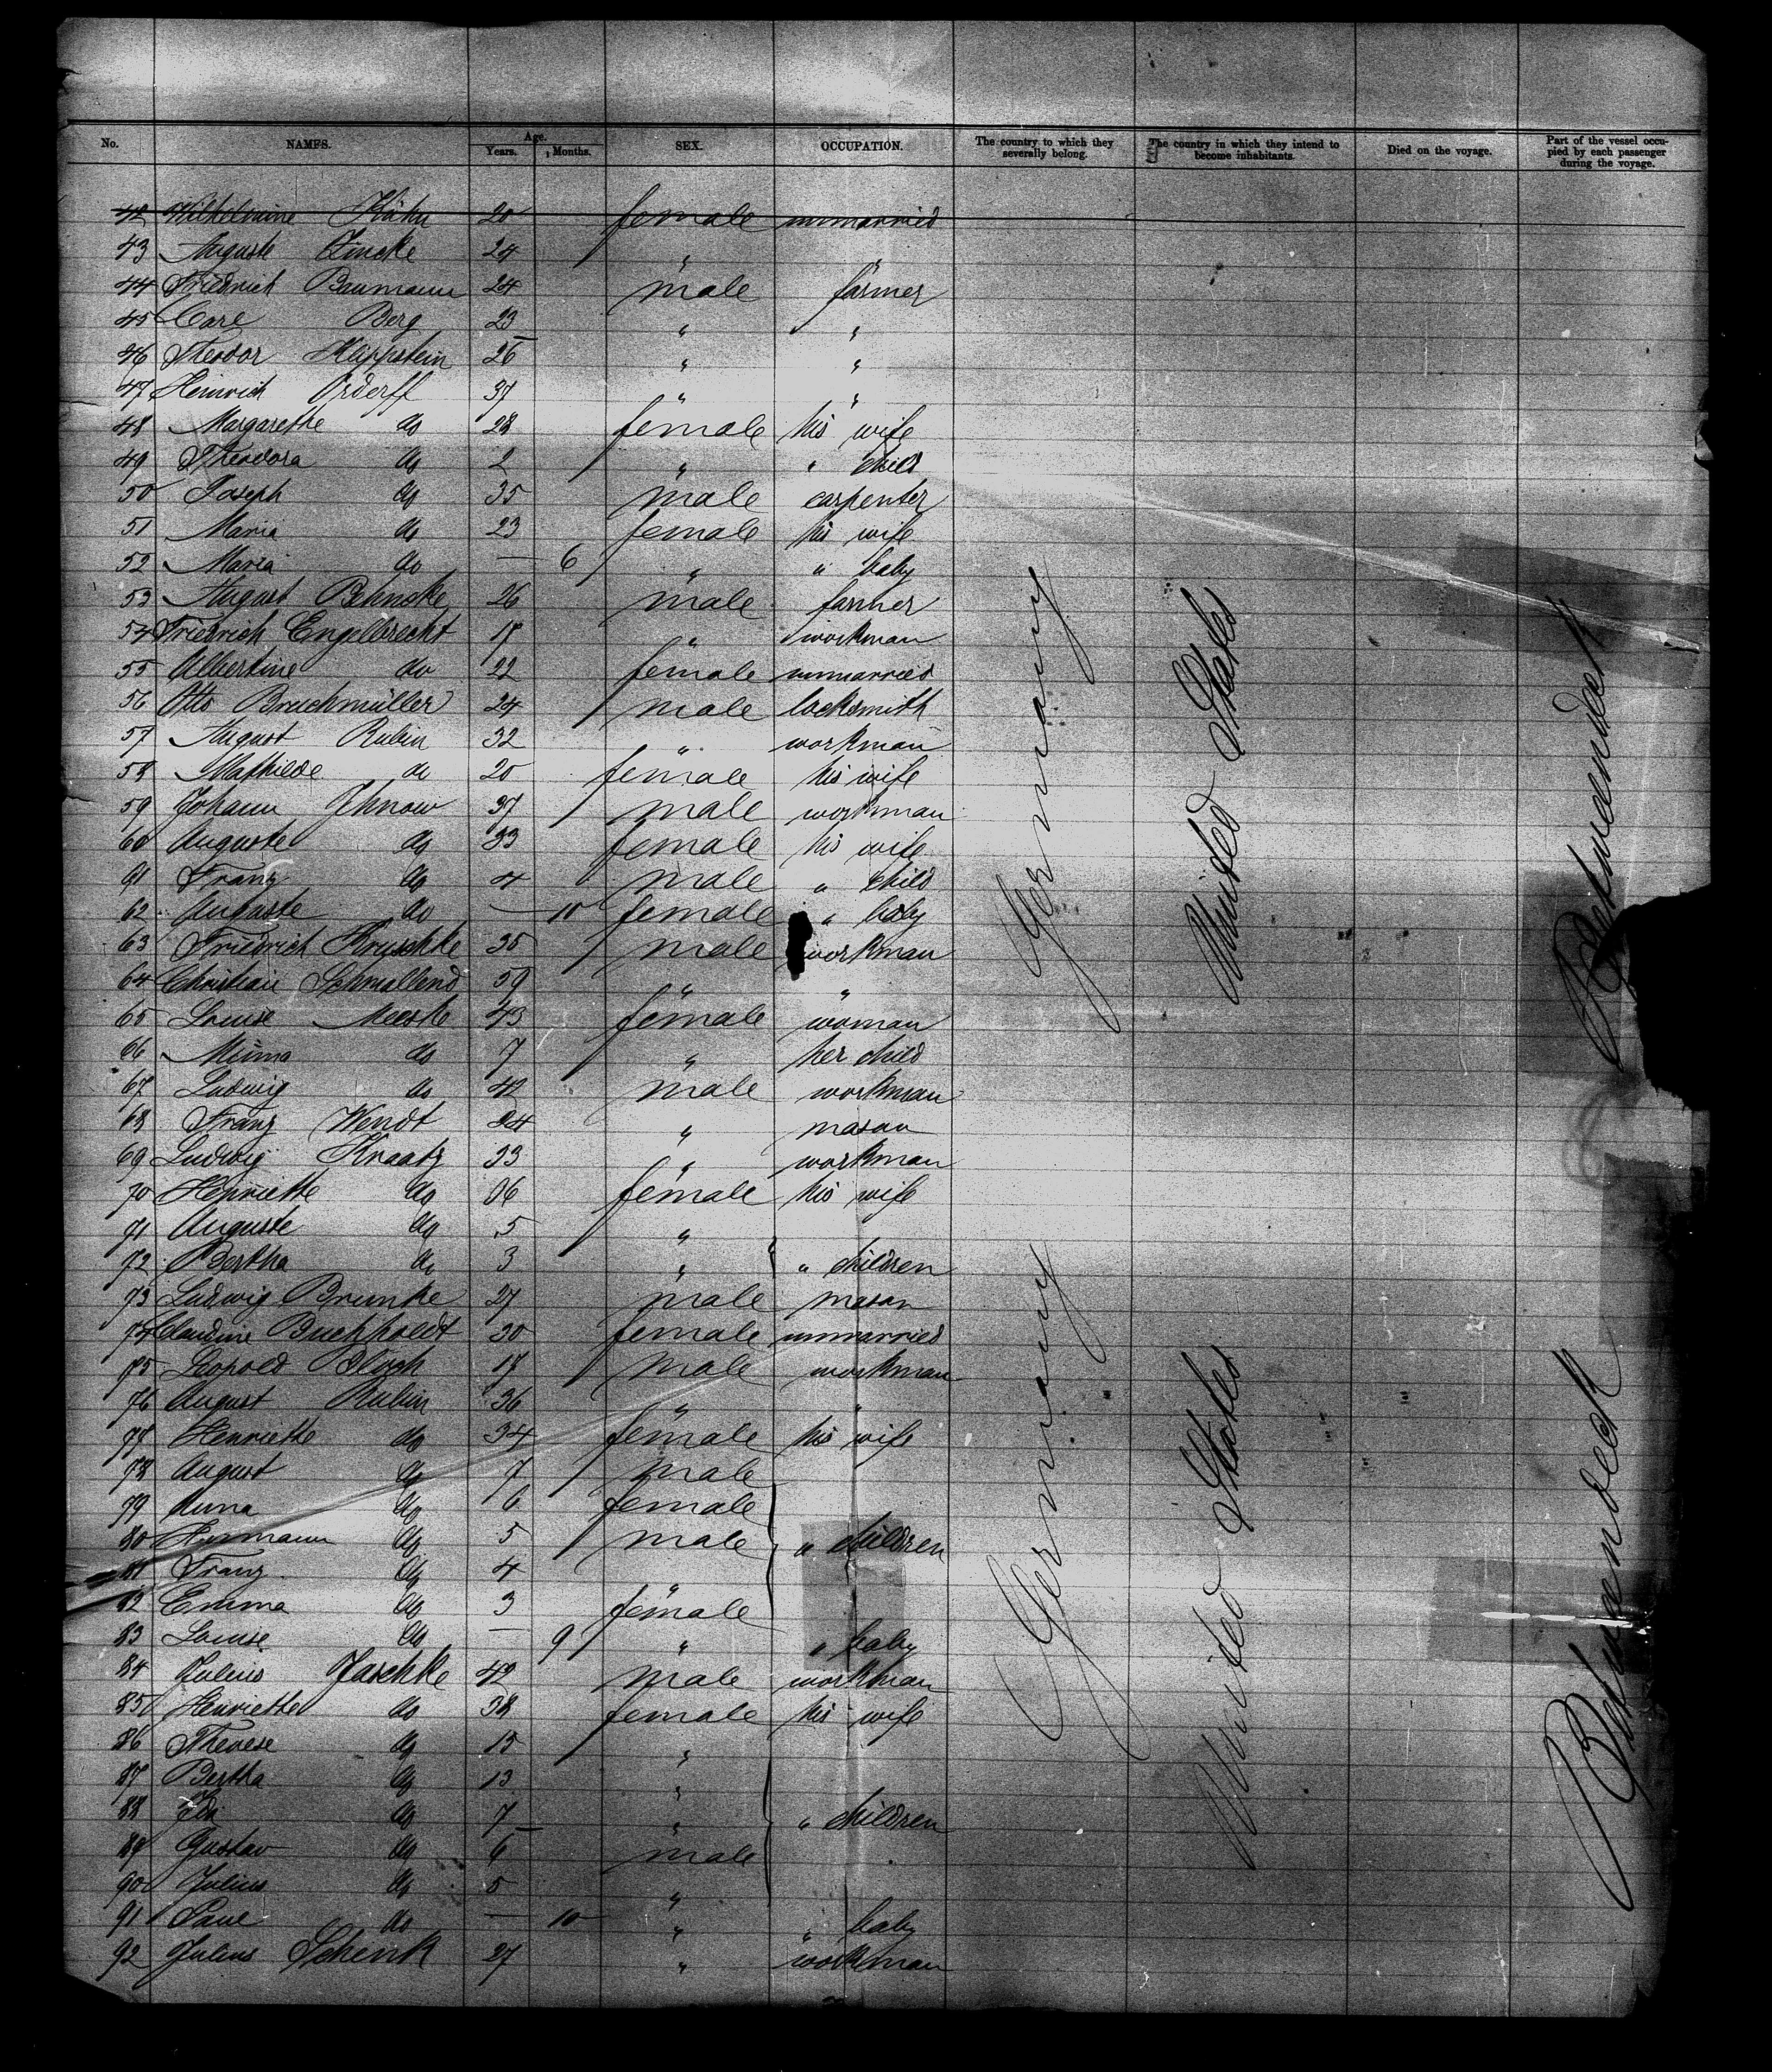 No. NAMES. Age. Years. Months. SEX. OCCUPATION. The country to which they severally belong. The country in which they intend to become inhabitants. Died on the voyage. Part of the vessel occupied by each passenger during the voyage.
42 Wilhelmine 20 female unmarried
43 Auguste Zincke 24 " "
44 Friedrich Baumann 24 male farmer
45 Carl Berg 23 " "
46 Theodor Klippstein 26 " "
47 Heinrich Orderff 37 " "
48 Margarethe do 28 female his wife
49 Theodora do 2 " " child
50 Joseph do 35 male carpenter
51 Maria do 23 female his wife
52 Maria do — 6 " " baby
53 August Behnske 26 male farmer
54 Friedrich Engelbrecht 18 " workman
55 Albertine do 22 female unmarried
56 Otto Bruchmüller 24 male locksmith
57 August Rubin 32 " workman
58 Mathilde do 20 female his wife
59 Johann Jhnow 37 male workman
60 Auguste do 33 female his wife
61 Franz do 4 male " child
62 Auguste do — 10 female " baby
63 Friedrich Kruschke 35 male workman
64 Christian 59 " "
65 Louise Meeske 43 female woman
66 Minna do 7 " her child
67 Ludwig do 42 male workman
68 Franz Wendt 24 " mason
69 Ludwig Kraatz 33 " workman
70 Henriette do female his wife
71 Auguste do 5 "
72 Bertha do 3 " " children
73 Ludwig Brunke 27 male mason
74 Buchholdt 30 female unmarried
75 Leopold Block 18 male workman
76 August Rubin 36 " "
77 Henriette do 34 female his wife
78 August do 7 male
79 Anna do 6 female
80 Hermann do 5 male " children
81 Franz do 4 "
82 Emma do 3 female
83 Louise do — 9 " " baby
84 Julius Jaschke 42 male workman
85 Henriette do 38 female his wife
86 Therese do 15 "
87 Bertha do 13 "
88 Ida do 7 " " children
89 Gustav do 6 male
90 Julius do 5 "
91 Paul do — 10 " " baby
92 Julius Schenk 27 " workman
Germany
United States
Betweendeck
Germany
United States
Betweendeck